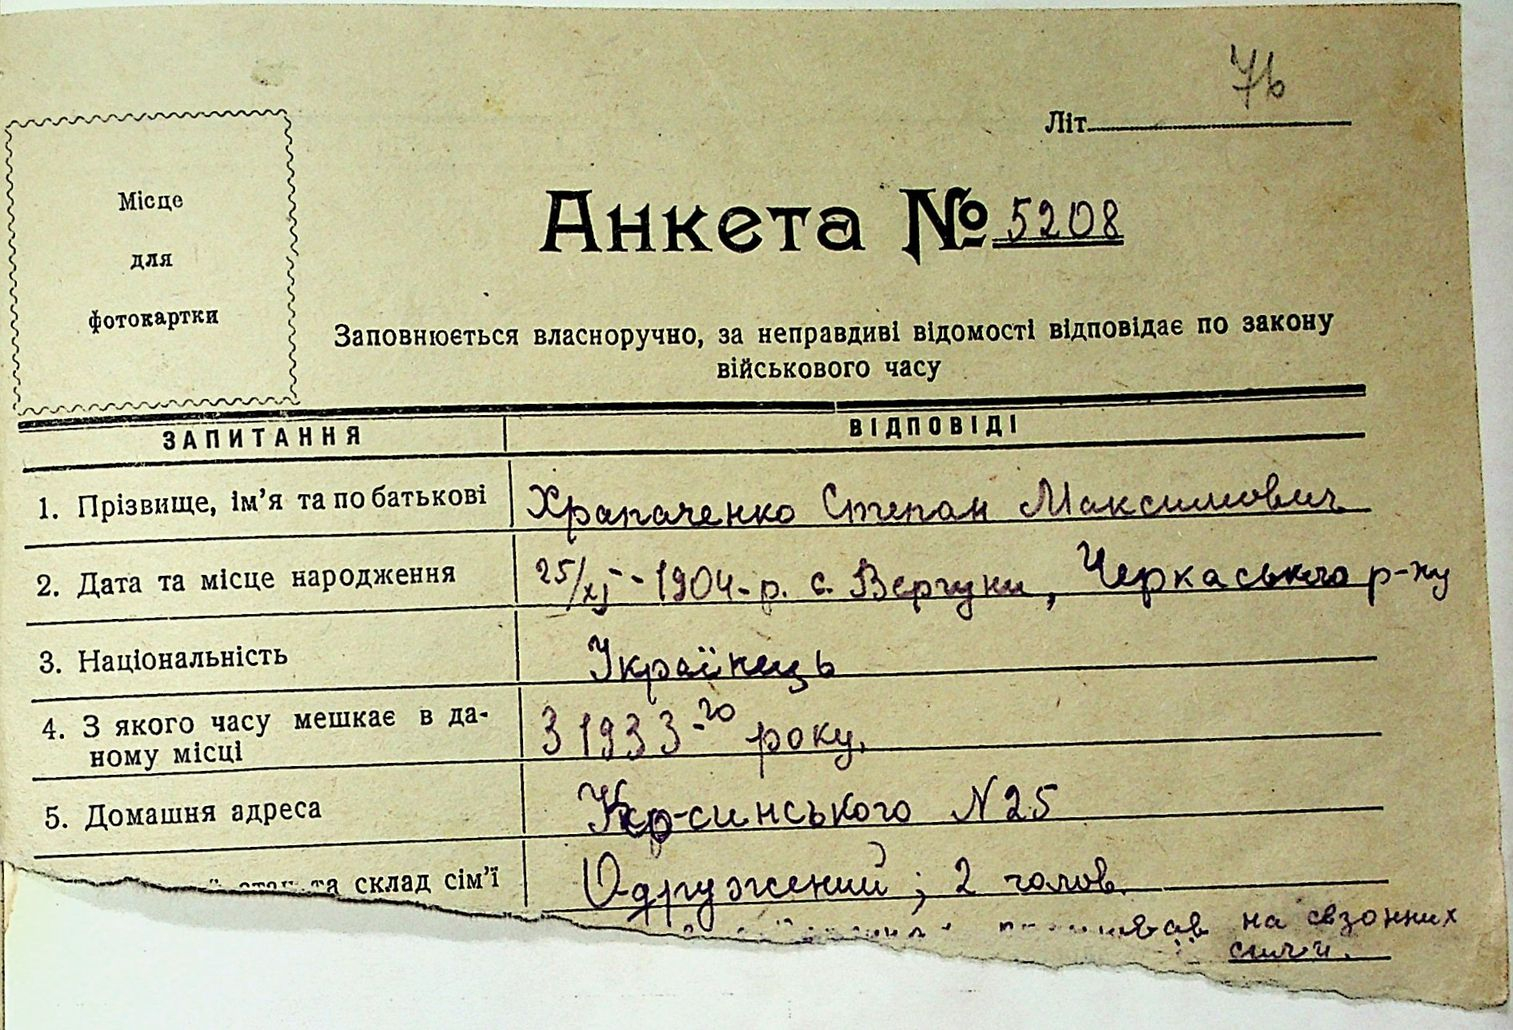 76
Літ.
Місце
для
фотокартки
Анкета № 5208
Заповнюється власноручно, за неправдиві відомості відповідає по закону
військового часу
ЗАПИТАННЯ ВІДПОВІДІ
1. Прізвище, ім'я та по батькові Храпаченко Степан Максимович
2. Дата та місце народження 25/XI - 1904-р. с. Вергуни, Черкаського р-ну
3. Національність Українець
4. З якого часу мешкає в да-
ному місці З 1933-го року.
5. Домашня адреса №25
стан та склад сім'ї Одружений; 2 голов.
на свзонних